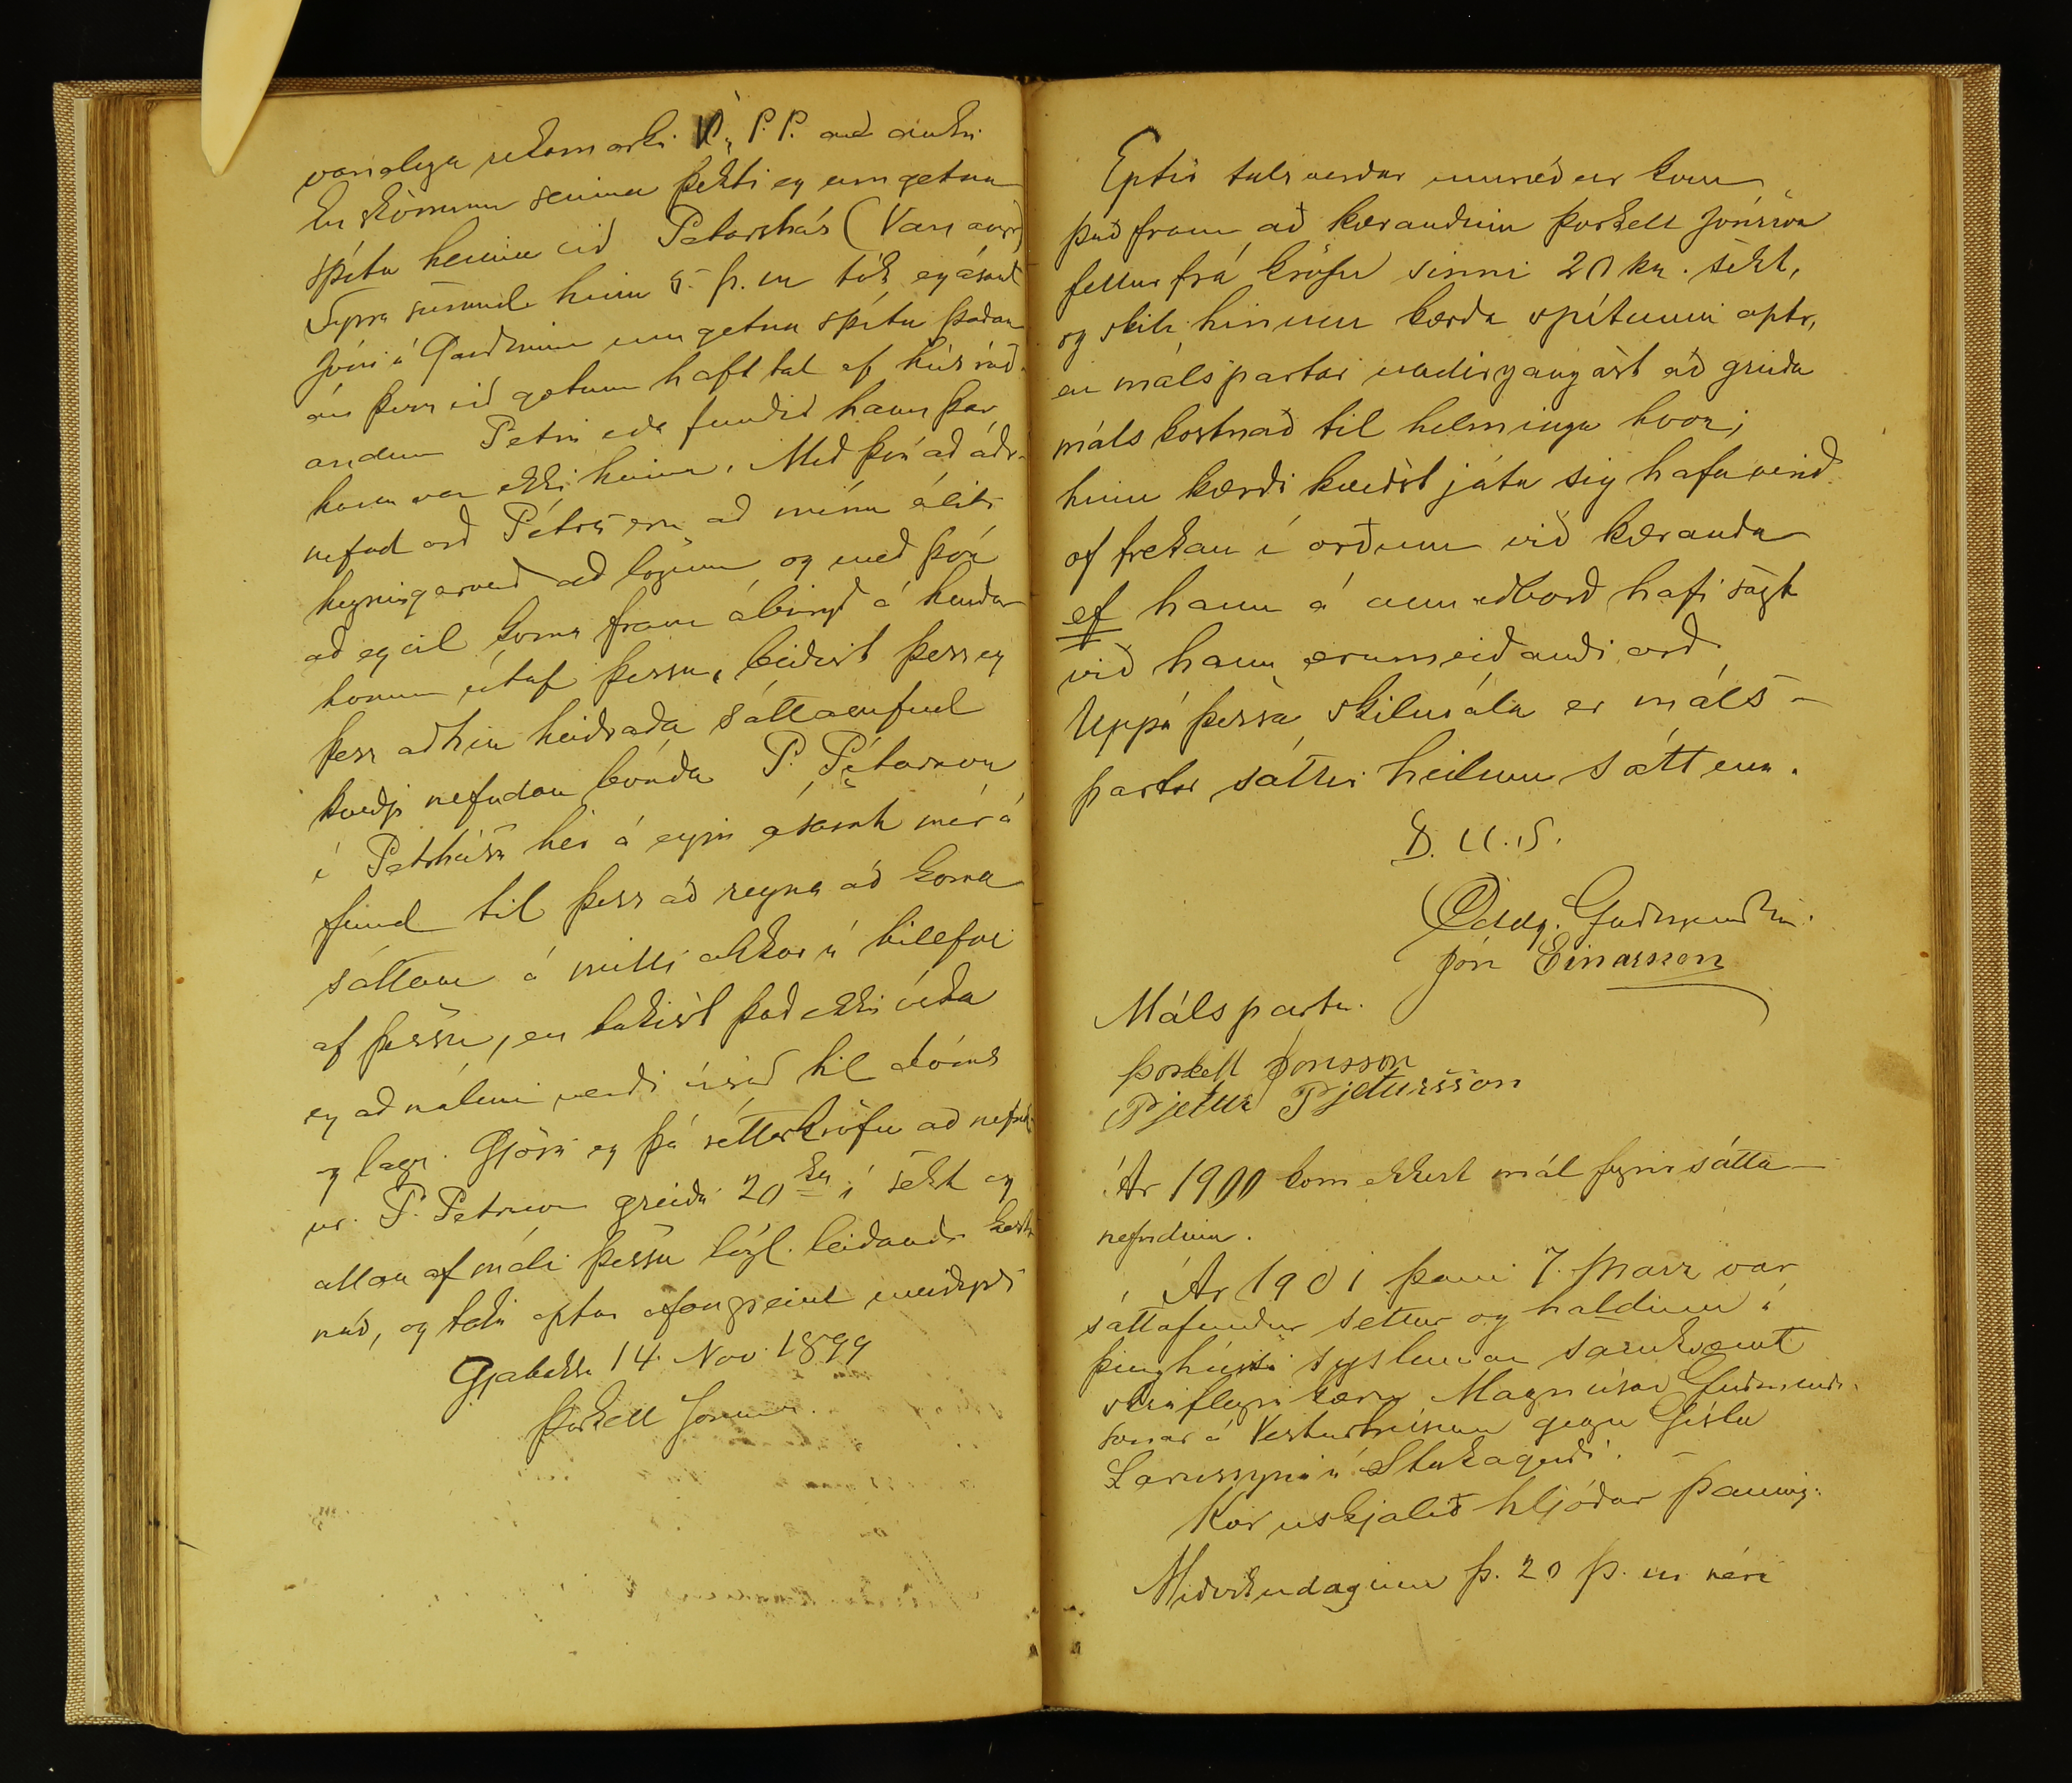 vanalega rekamarki P. P. með einkni
En skömmu seinna þekti eg umgetna
spítu heima við Peturshús (Vanangr)
Fyrra sunnud. hinn 5. þ. m tók eg ásamt
Jóni í Gardinum umgetna spítu þaðan
án þess við gætum haft tal af húsráð-
andum Petri eða fundið hann þar
hann var ekki heima. Með því að áðr-
nefnd orð Péturs eru að mínu áliti
hegningarverð að lögum og með því
að eg vil koma fram ábirgð á hendur
honum útaf þessu, beiðist þess eg
þess að hin heidraða sáttanefnd
kveðji nefndan bónda P. Pétursson
í Petrshúsi hér á eyju ásamt mér á
fund til þess að reyna að koma
sáttum á milli okkar í tilefni
af þessu, en takist það ekki óska
eg að málinu verði vísað til dóms
og laga. Gjöri eg þá réttarkröfu að nefnd-
ur. P. Petursson greiði 20 kr í sekt og
allan af máli þessu lögl. leiðandi kostn
nað, og taki aptur ofangreind meiðyrði
Gjabakka 14. Nov. 1899
Þorkell Jónsson.
Eptir talsverdar umræður kom
það fram að kærandinn Þorkell Jónsson
fellur frá kröfu sinni 20 kr. sekt,
og skili hinum kærða spítunni aptr,
en málspartar undirgangast að greiða
málskostnað til helminga hvor;
hinn kærði kveðst játa sig hafa verið
of frekan í orðum við kæranda
ef hann á annað borð hafi sagt
við hann ærumeiðandi orð.
Uppá þessa skilmála er máls-
partar sáttir heilum sáttum.
D. U. S.
Oddg. Guðmundsen.
Jón Einarsson
Málspartar.
Þorkell Jónsson
Pjetur Pjetursson
Ár 1900 kom ekkert mál fyrir sátta-
nefndina.
Ár 1901 þann 7. Marz var
sáttafundur settur og haldinn í
þinghúsi syslunnar samkvæmt
skriflegri kæru Magnúsar Guðmunds-
sonar á Vesturhúsum gegn Gísla
Larussyni á Stakagerði.
Kæruskjalið hljóðar þannig:
Miðvikudaginn þ. 20 þ. m. réri